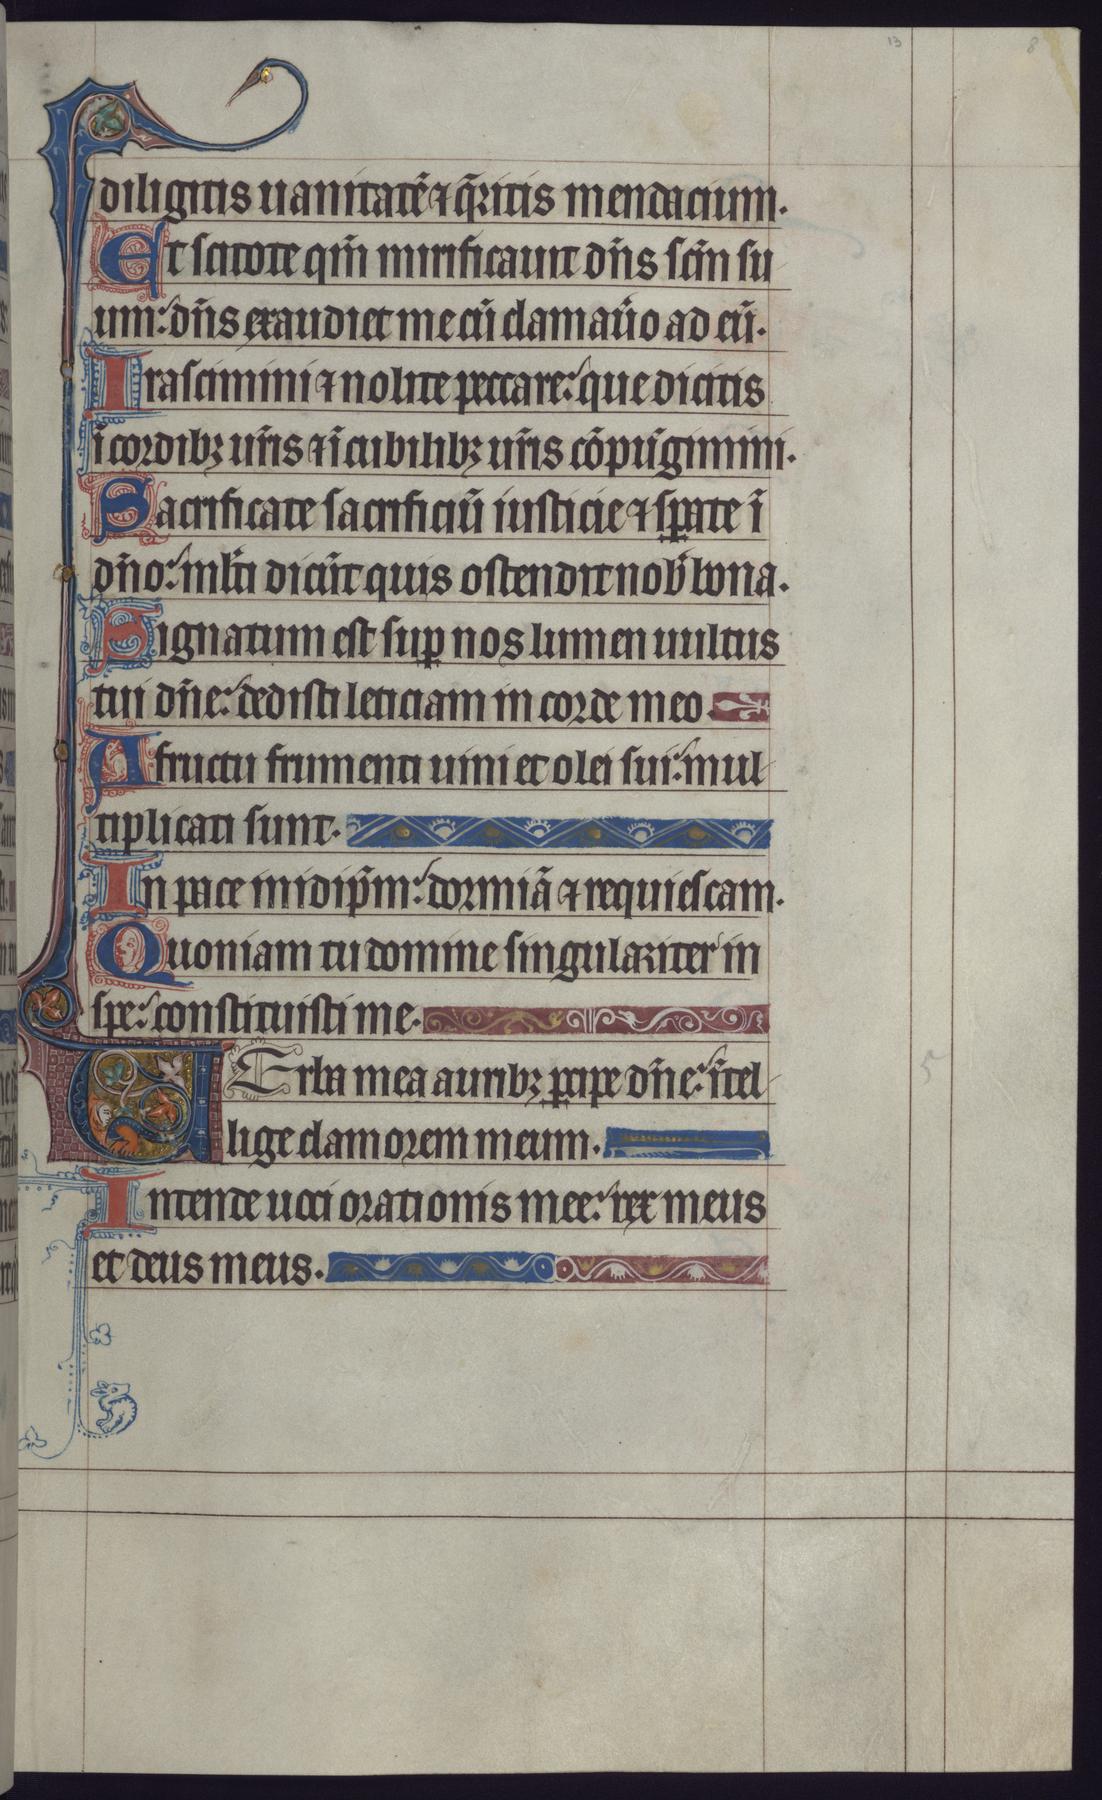 13 8
diligitis uanitatē ⁊ q̄ritis mendacium.
Et scitote qm̄ mirificauit dn̄s scm̄ su
um: dn̄s exaudiet me cū clamau̾o ad eū.
Irascimini ⁊ nolite peccare: que dicitis
ī cordibꝫ ur̄is ⁊ ī cubilibꝫ ur̄is cōpūgimini.
Sacrificate sacrificiū iusticie ⁊ sꝑate ī
dn̄o: ml̄ti dicūt quis ostendit nob̄ bona.
Signatum est suꝑ nos lumen uultus
tui dn̄e: dedisti leticiam in corde meo.
A fructu frumenti uini et olei sui: mul
tiplicati sunt.
In pace in idip̄m: dormiā ⁊ requiescam.
Quoniam tu domine singulariter in
spe: constituisti me.
VErba mea auribꝫ ꝑcipe dn̄e: ītel
lige clamorem meum.
Intende uoci orationis mee: rex meus
et deus meus.
5